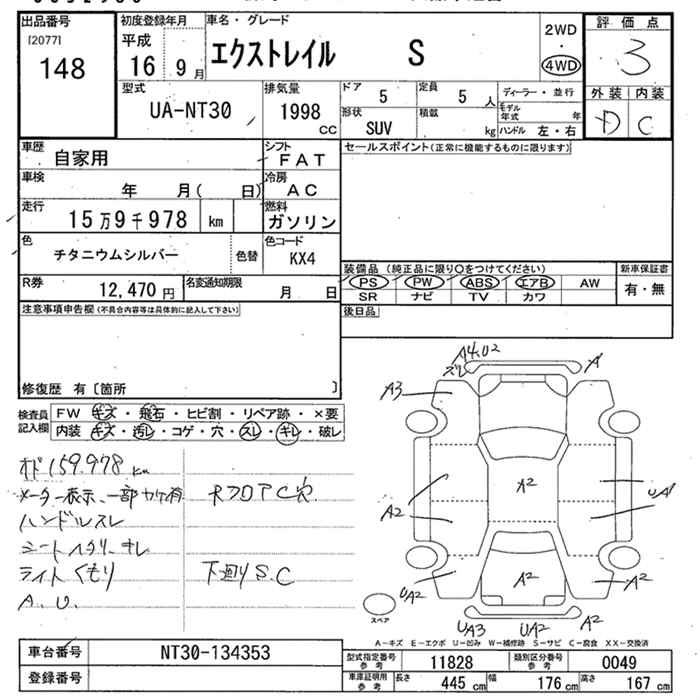 出品番号 初度登録年月 車名・グレード 2WD 評価点
[2077] 平成 ・
148 16 9月 エクストレイル S 4WD 3
型式 排気量 ドア 定員 ディーラー・並行 外装 内装
UA-NT30 1998 cc 5 5 人 モデル年式 年 D C
形状 積載 ハンドル 左・右
SUV kg
車歴 シフト セールスポイント(正常に機能するものに限ります)
自家用 FAT
車検 冷房
年 月( 日) AC
走行 燃料
15万9千978 km ガソリン
色 色コード
チタニウムシルバー 色替 KX4
装備品 (純正品に限り○をつけてください) 新車保証書
PS PW ABS エアB AW 有・無
SR ナビ TV カワ
R券 名変通知期限
12,470円 月 日
注意事項申告欄(不具合内容等は具体的に記入して下さい) 後日品
修復歴 有〔箇所 〕
検査員記入欄 FW キズ・飛石・ヒビ割・リペア跡・×要
内装 キズ・汚レ・コゲ・穴・スレ・キレ・破レ
オド 159.978 km
メーター表示、一部カケ有 RフロアC穴
ハンドルスレ
シート
ライトくもり 下廻りS.C
A.U.
A4.U2
ズレ A
A3
A2
A2 UA1
UA2 A2 A2
UA3 UA2 A2
スペア
A-キズ E-エクボ U-凹み W-補修跡 S-サビ C-腐食 XX-交換済
車台番号 NT30-134353
登録番号
型式指定番号参考 11828 類別区分番号参考 0049
車庫証明用参考 長さ 445 cm 幅 176 cm 高さ 167 cm